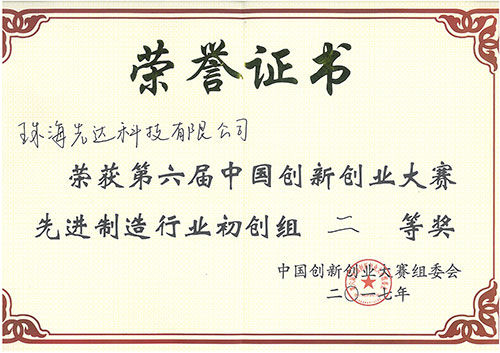 荣誉证书
珠海先达科技有限公司
荣获第六届中国创新创业大赛
先进制造行业初创组 二 等奖
中国创新创业大赛组委会
二〇一七年